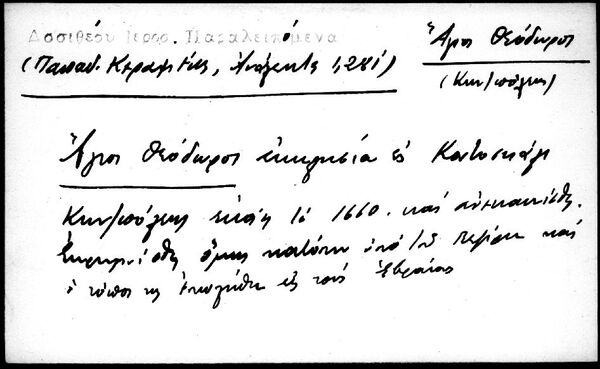 Δοσιθέου Ιεροσ. Παραλειπόμενα
Ἅγιοι Θεόδωροι
(Παπαδ. Κεραμεύς, Ἀνάλεκτα 1,281)
(Κων/πόλεως)
Ἅγιοι Θεόδωροι ἐκκλησία ἐν
Κων/πόλεως ἐκάη τὸ 1660. καὶ ἀνεκαινίσθη.
ὅμως κατόπιν ὑπὸ τοῦ καὶ
ὁ τόπος της ἐπωλήθη εἰς τοὺς Ἑβραίους